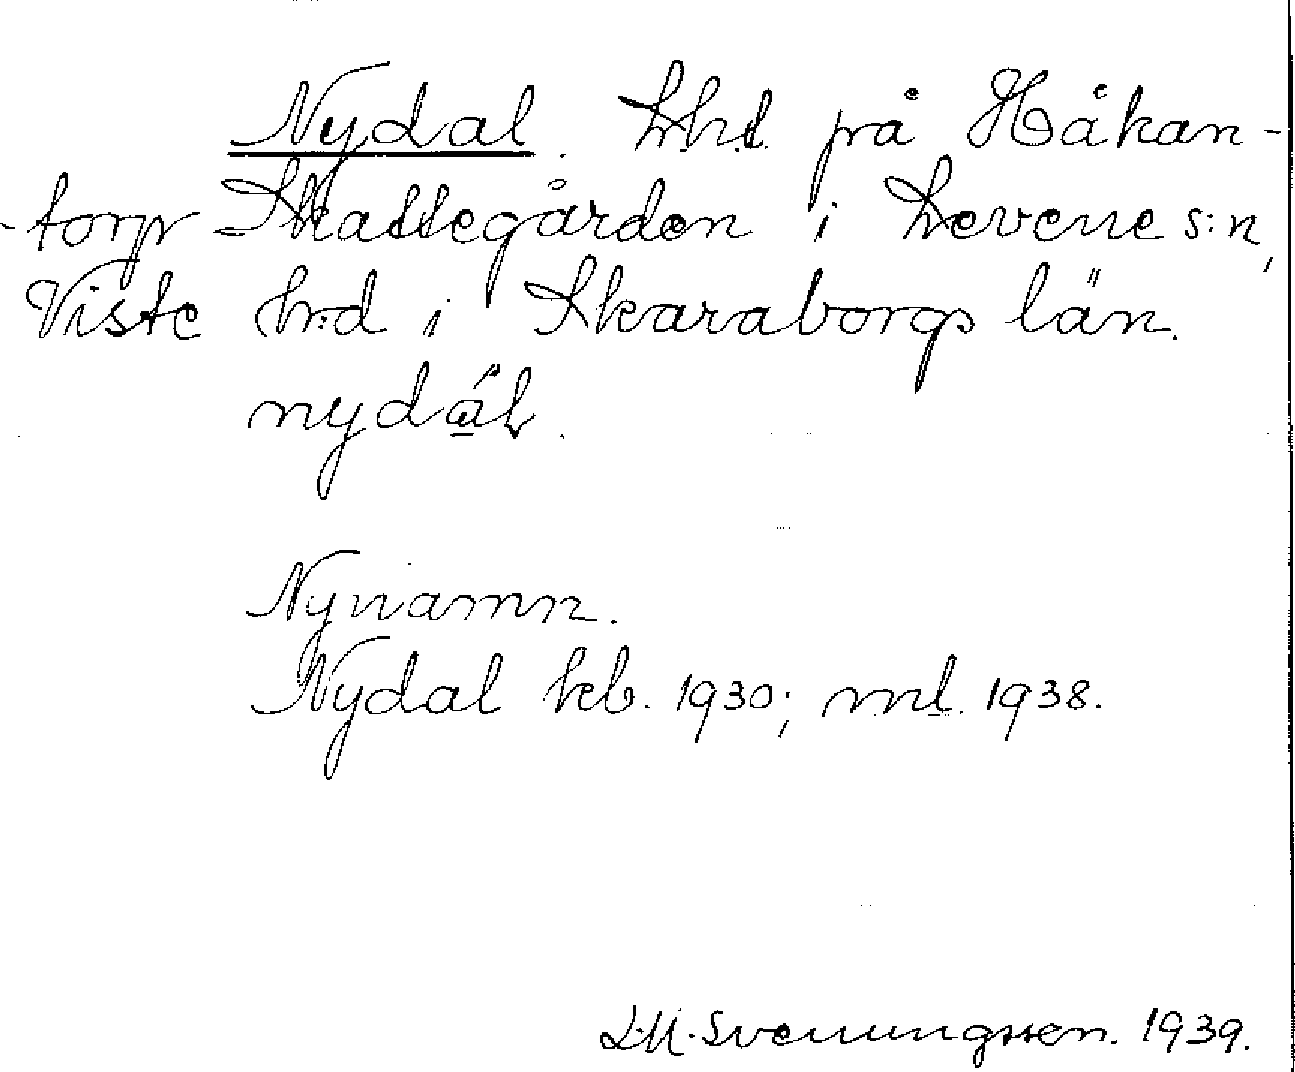 Nydal. Lht på Håkan-
-torp Skattegården i Levene s:n,
Viste h:d i Skaraborgs län.
nydál.
Nynamn.
Nydal kb. 1930; ml. 1938.
Svenungsson. 1939.